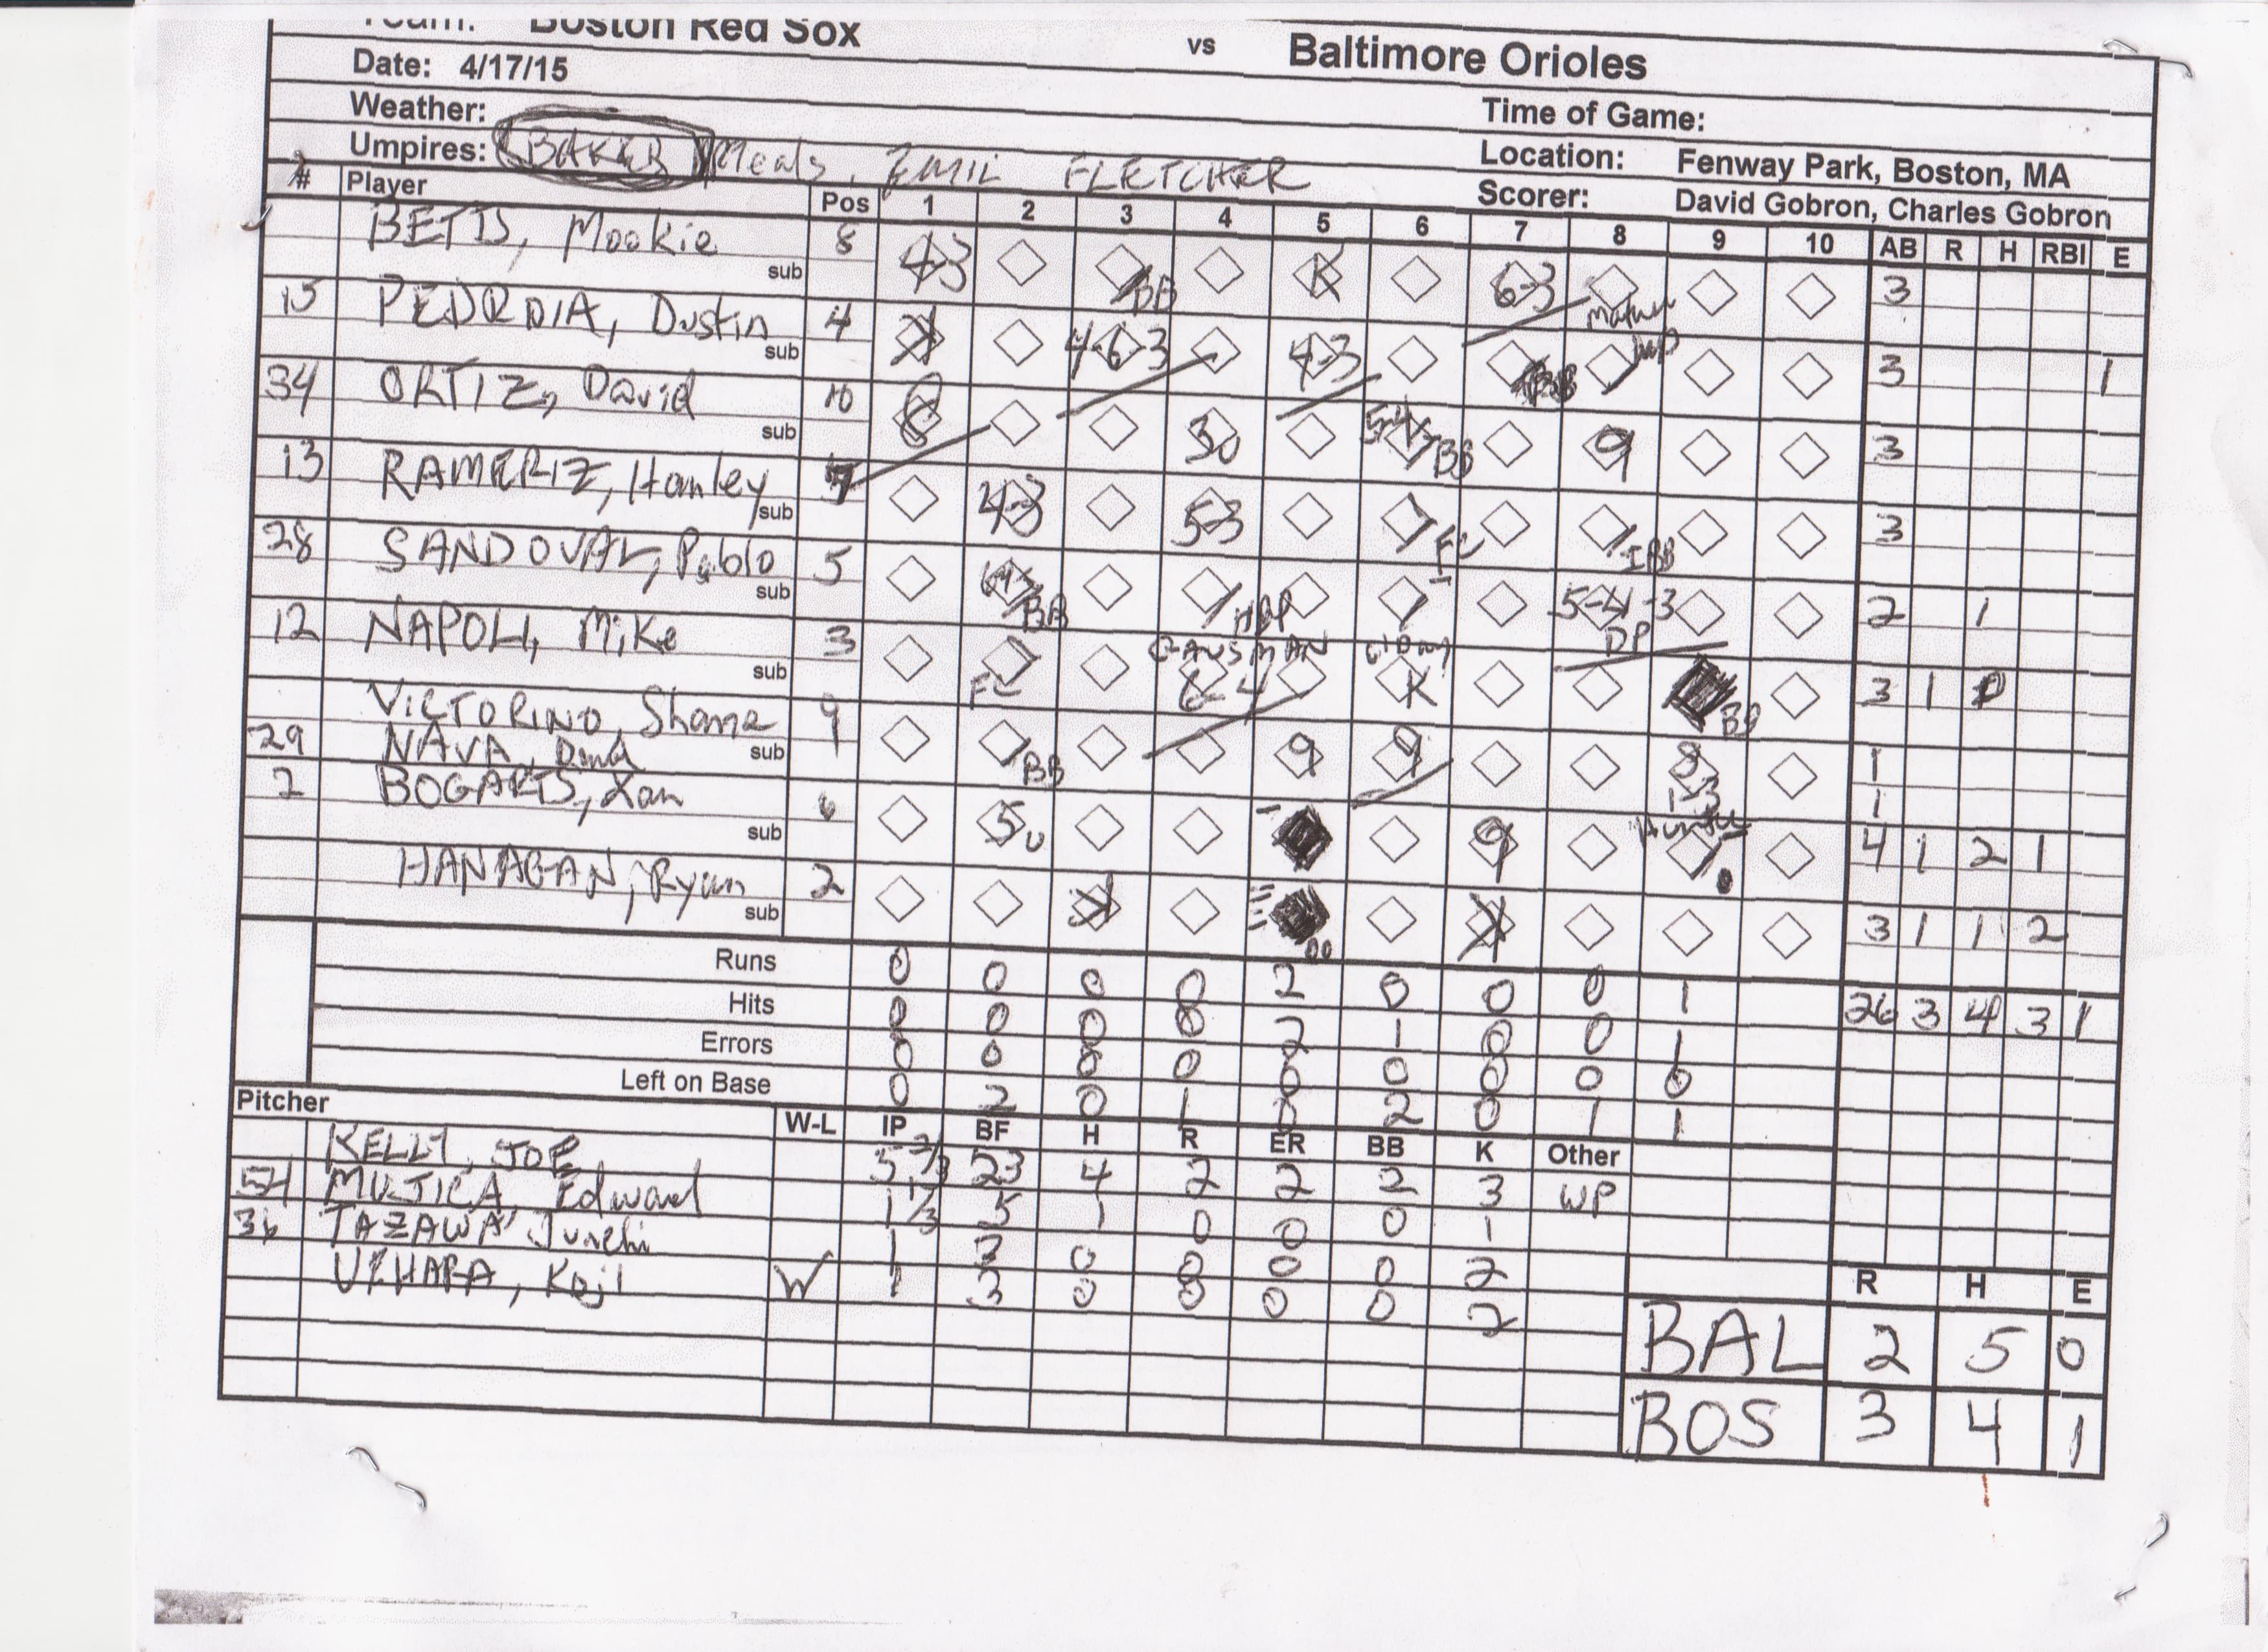 Team: Boston Red Sox vs Baltimore Orioles
Date: 4/17/15
Weather: Time of Game:
Umpires: BAKER Meals, EMIL FLETCHER Location: Fenway Park, Boston, MA
Scorer: David Gobron, Charles Gobron
# Player Pos 1 2 3 4 5 6 7 8 9 10 AB R H RBI E
BETTS, Mookie 8 4-3 BB K 6-3 3
sub
15 PEDROIA, Dustin 4 K 4-6-3 4-3 BB 3 1
sub
34 ORTIZ, David 10 8 3U BB 9 3
sub
13 RAMERIZ, Hanley 7 4-3 5-3 FC IBB 3
sub
28 SANDOVAL, Pablo 5 BB HBP 1 5-4-3 DP 2 1
sub
12 NAPOLI, Mike 3 FC GAUSMAN 6-4 K BB 3 1
sub
VICTORINO, Shane 9 BB 9 9 8 1
29 NAVA, sub 1-3 1
2 BOGARTS, Xan 6 5U 9 4 1 2 1
sub
HANAGAN, Ryan 2 K K 3 1 1 2
sub
Runs 0 0 0 0 2 0 0 0 1 26 3 4 3 1
Hits 0 0 0 0 2 1 0 0 1
Errors 0 0 0 0 0 0 0 0 0
Left on Base 0 2 0 1 0 2 0 1 1
Pitcher W-L IP BF H R ER BB K Other
KELLY, JOE 5 2/3 23 4 2 2 2 3 WP
54 MUJICA, Edward 1 1/3 5 1 0 0 0 1
36 TAZAWA, Junchi 1 3 0 0 0 0 2
UEHARA, Koji W 1 3 0 0 0 0 2
R H E
BAL 2 5 0
BOS 3 4 1